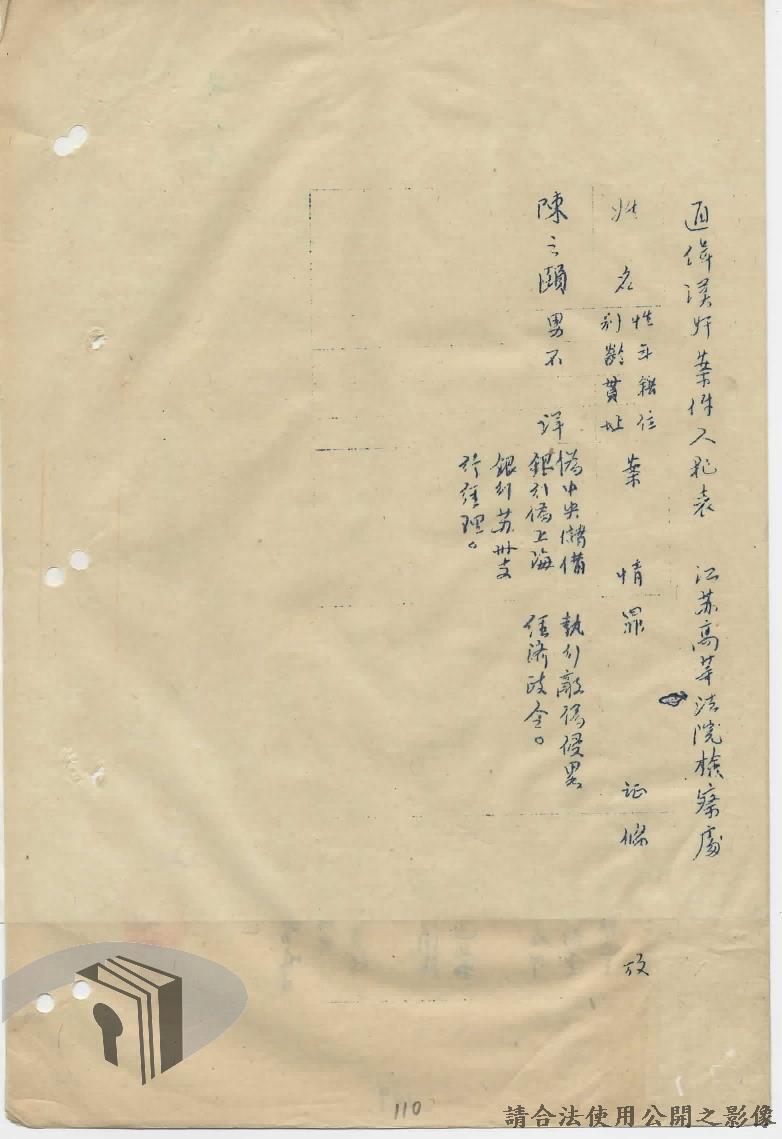 通緝漢奸案件人犯表 江苏高等法院檢察處
姓名 性別 年齡 籍貫 住址 案情 罪 证 條 攷
陳之頤 男 不詳
偽中央儲備
銀行偽上海
銀行苏州支
行經理。
執行敵偽侵畧
經濟政令。
110
請合法使用公開之影像